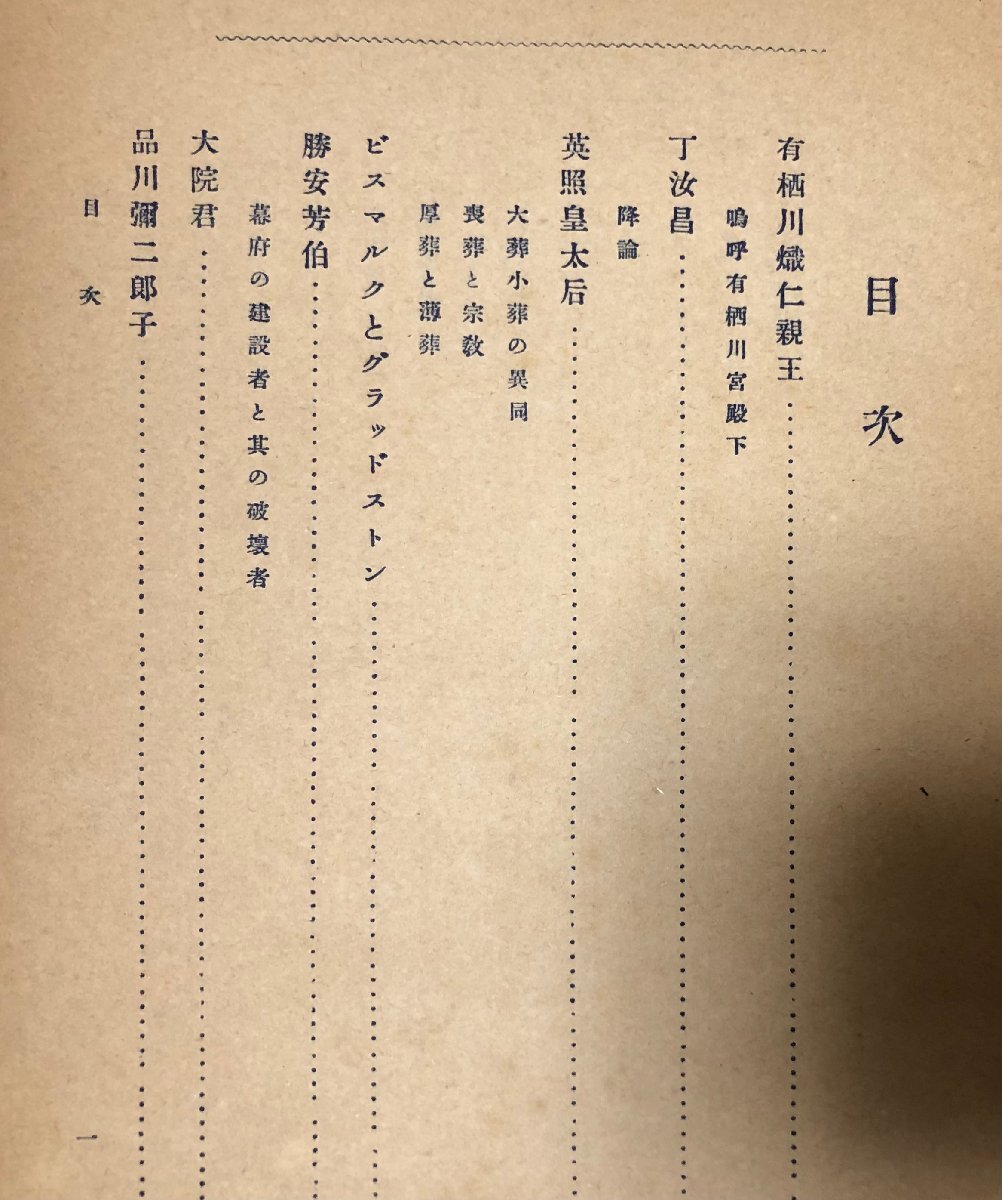 目次
有栖川熾仁親王
嗚呼有栖川宮殿下
丁汝昌
降論
英照皇太后
大葬小葬の異同
喪葬と宗教
厚葬と薄葬
ビスマルクとグラッドストン
勝安芳伯
幕府の建設者と其の破壞者
大院君
品川彌二郎子
目次
一